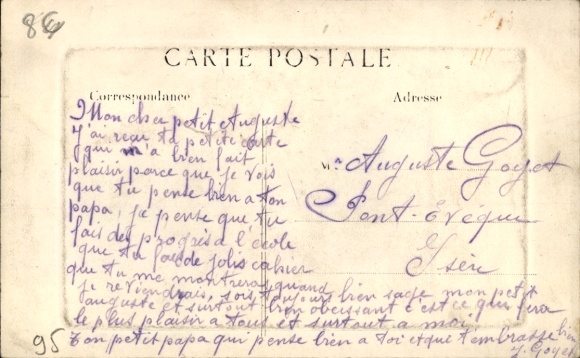 86
CARTE POSTALE
Correspondance
Adresse
Mon cher petit Auguste
J'ai reçu ta petite carte
qui m'a bien fait
plaisir parce que je vois
que tu pense bien a ton
papa, je pense que tu
fais des progrès a l'école
que tu fais de jolis cahier
que tu me montreras quand
je reviendrais, sois toujours bien sage mon petit
auguste et surtout bien obeissant c'est ce que fera
le plus plaisir a tous et surtout a moi
Ton petit papa qui pense bien a toi et qui t'embrasse bien
J. Goyet
Mr Auguste Goyet
Pont-Evêque
Isère
95